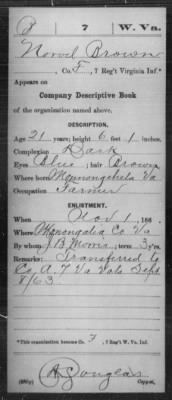 B | 7 | W. Va.
Norvel Brown
, Co. F, 7 Reg't Virginia Inf.*
Appears on
Company Descriptive Book
of the organization named above.
DESCRIPTION.
Age 21 years; height 6 feet 1 inches.
Complexion Dark
Eyes Blue; hair Brown
Where born Monnongehela Va
Occupation Farmer
ENLISTMENT.
When Nov 1, 186 .
Where Monongalia Co Va
By whom J. B. Morris; term 3 y'rs.
Remarks: Transferred to
Co. A. 7 Va Vols Sept
8/63
*This organization became Co. F, 7 Reg't W. Va. Inf.
Douglas
Copyist.